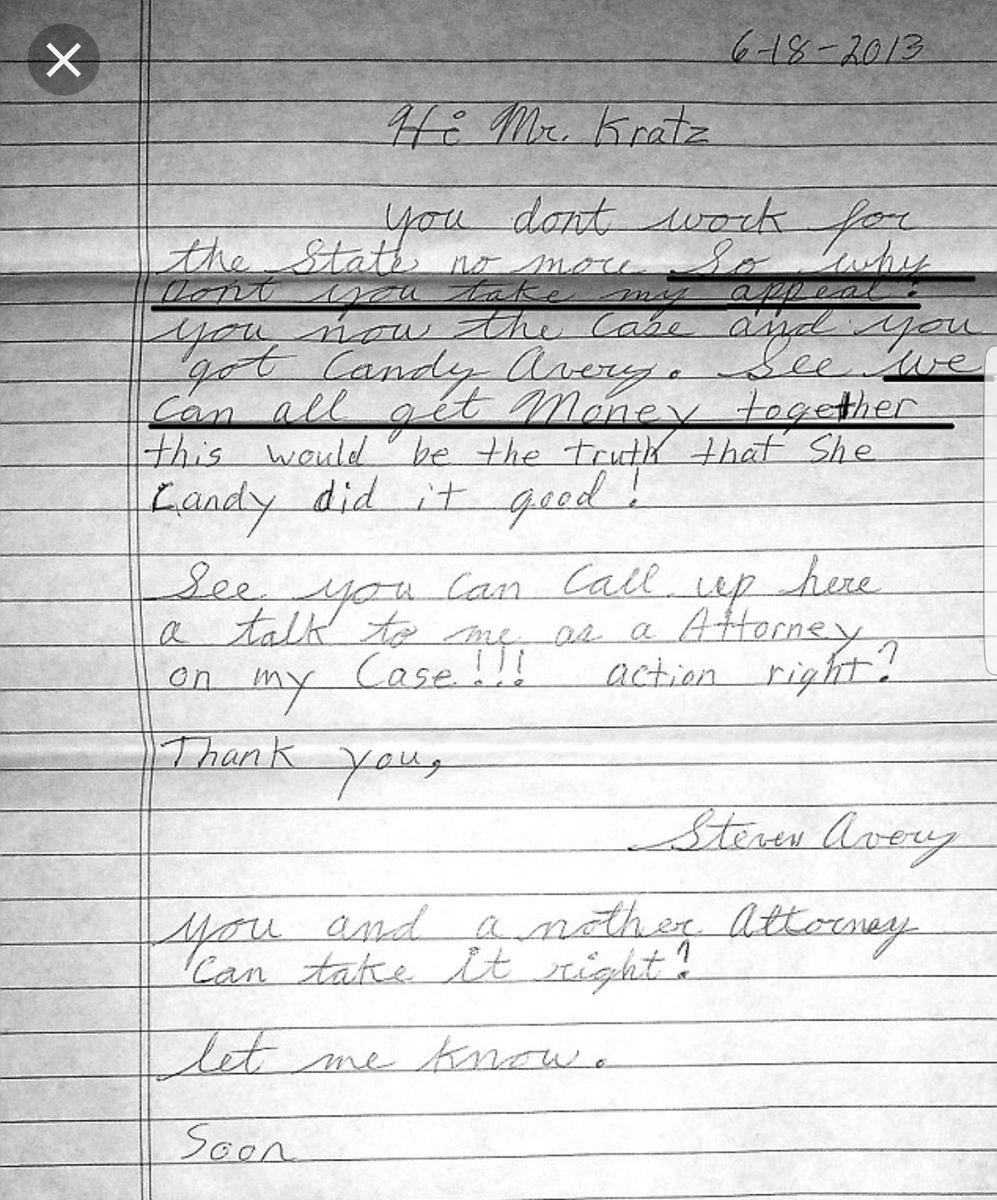 6-18-2013
Hi Mr. Kratz
you dont work for
the State no more So why
Dont you take my appeal?
you now the Case and you
got Candy Avery. See we
can all get Money together
this would be the truth that She
Candy did it good!
See you can Call up here
a talk to me as a Attorney
on my Case!!! action right?
Thank you,
Steven Avery
you and a nother Attorney
Can take it right?
let me know.
Soon